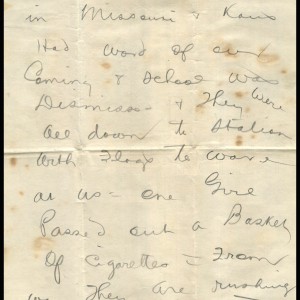 in Missouri & Kans
Had word of our
Coming & School was
Dismissed & They were
all down to Station
with Flags to wave
at us = one Girl
Passed out a Basket
Of Cigarettes = From
They are rushing